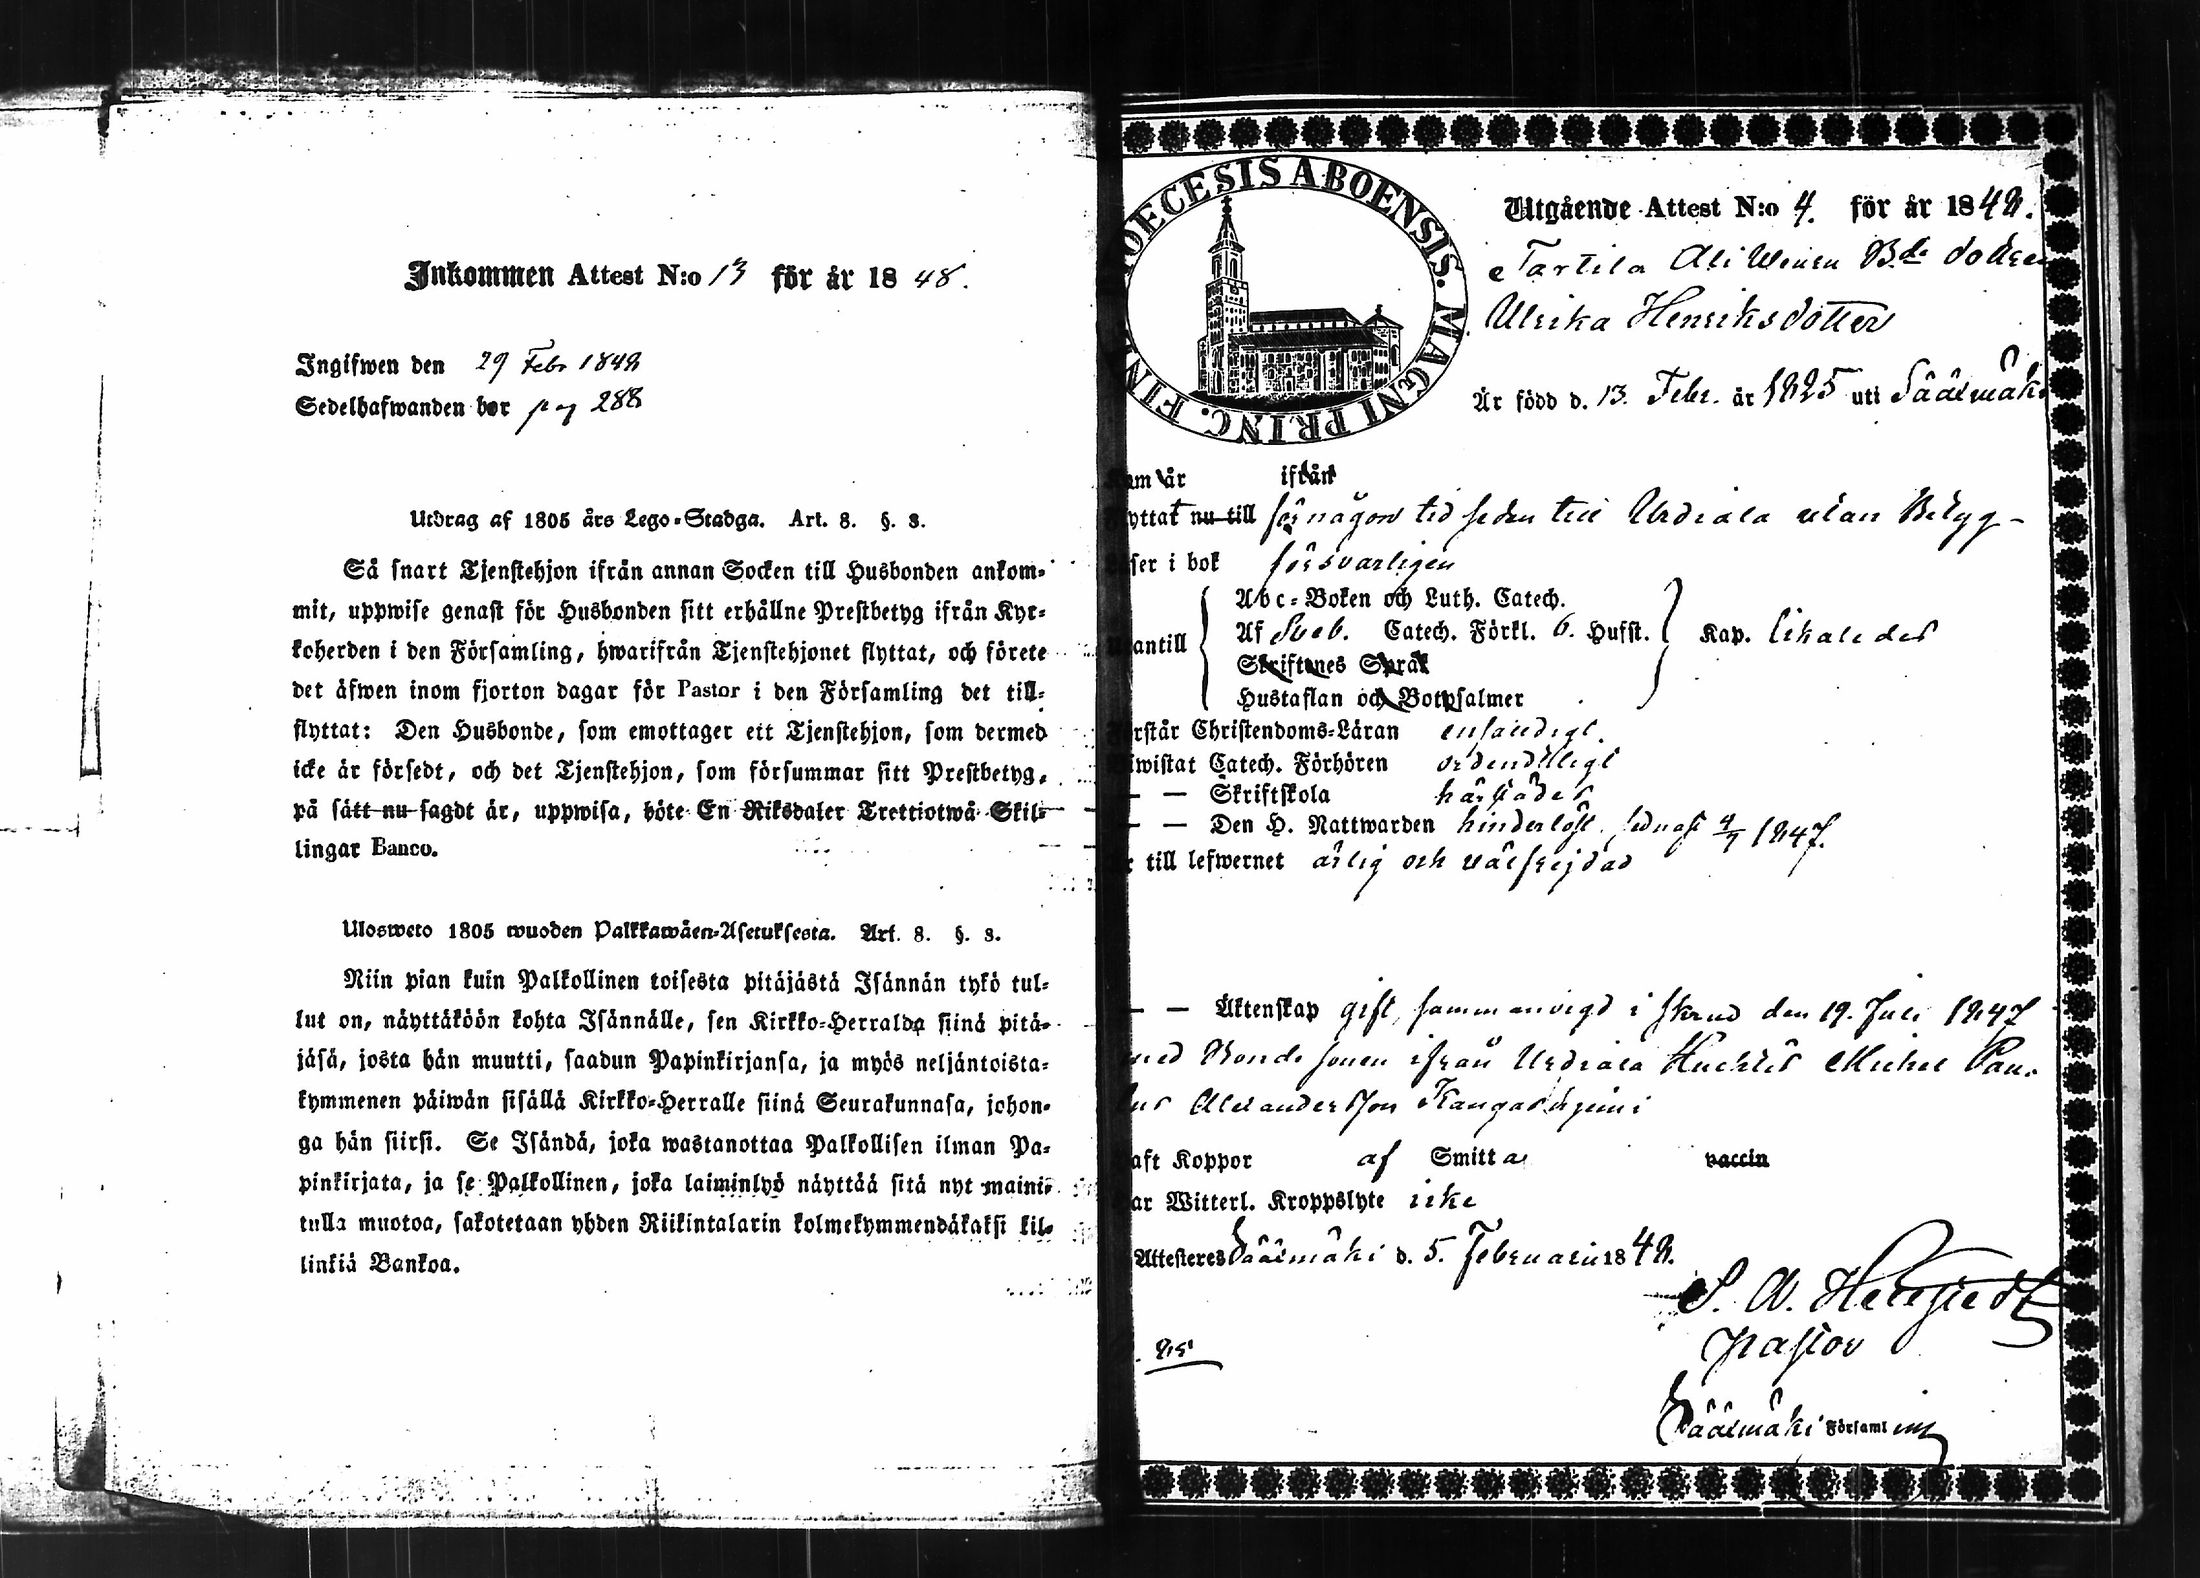 Inkommen Attest N:o 13 för år 18 48.
Ingifwen den 29 Febr 1848
Sedelhafwanden bor pag 288
Utdrag af 1805 års Lego-Stadga. Art. 8. §. 3.
Så snart Tjenstehjon ifrån annan Socken till Husbonden ankom-
mit, uppwise genast för Husbonden sitt erhållne Prestbetyg ifrån Kyr-
koherden i den Församling, hwarifrån Tjenstehjonet flyttat, och förete
det äfwen inom fjorton dagar för Pastor i den Församling det till-
flyttat: Den Husbonde, som emottager ett Tjenstehjon, som dermed
icke är försedt, och det Tjenstehjon, som försummar sitt Prestbetyg,
på sätt nu sagdt är, uppwisa, böte En Riksdaler Trettiotwå Skil-
lingar Banco.
Ulosweto 1805 wuoden Palkkawäen-Asetuksesta. Art. 8. §. 3.
Niin pian kuin Palkollinen toisesta pitäjästä Isännän tykö tul-
lut on, näyttäköön kohta Isännälle, sen Kirkko-Herralda siinä pitä-
jäsä, josta hän muutti, saadun Papinkirjansa, ja myös neljäntoista-
kymmenen päiwän sisällä Kirkko-Herralle siinä Seurakunnasa, johon-
ga hän siirsi. Se Isändä, joka wastanottaa Palkollisen ilman Pa-
pinkirjata, ja se Palkollinen, joka laiminlyö näyttää sitä nyt maini-
tulla muotoa, sakotetaan yhden Riikintalarin kolmekymmendäkaksi kil-
linkiä Bankoa.
DIOECESIS ABOENSIS. MAGNI PRINC. FINL
Utgående Attest N:o 4. för år 1848.
Tartila Ali Uotila Bde dottren
Ulrika Henriksdotter
Är född d. 13. Febr. år 1825 uti Sääxmäki
som är ifrån
flyttat nu till för någon tid sedan till Urdiala utan Betyg-
Läser i bok försvarligen
Abc-Boken och Luth. Catech.
utantill Af Sveb. Catech. Förkl. 6. Hufst. Kap. likaledes
Skriftenes Språk
Hustaflan och Botpsalmer
Förstår Christendoms-Läran enfaldigt.
Biwistat Catech. Förhören ordentligt
— — Skriftskola härstädes
— — Den H. Nattwarden hinderlöst, sednast 4/7 1847.
Är till lefwernet ärlig och välfrejdad
— — Äktenskap gift, sammanvigd i stånd den 19. Juli 1847
med Bonde sonen ifrån Urdiala Huhtis Michel Pau-
lus Alexandersson Kangasniemi
Haft Koppor af Smitta vaccin
Har Witterl. Kroppslyte icke
Attesteres Sääxmäki d. 5. Februarii 1848.
Pastor
Sääxmäki Församling